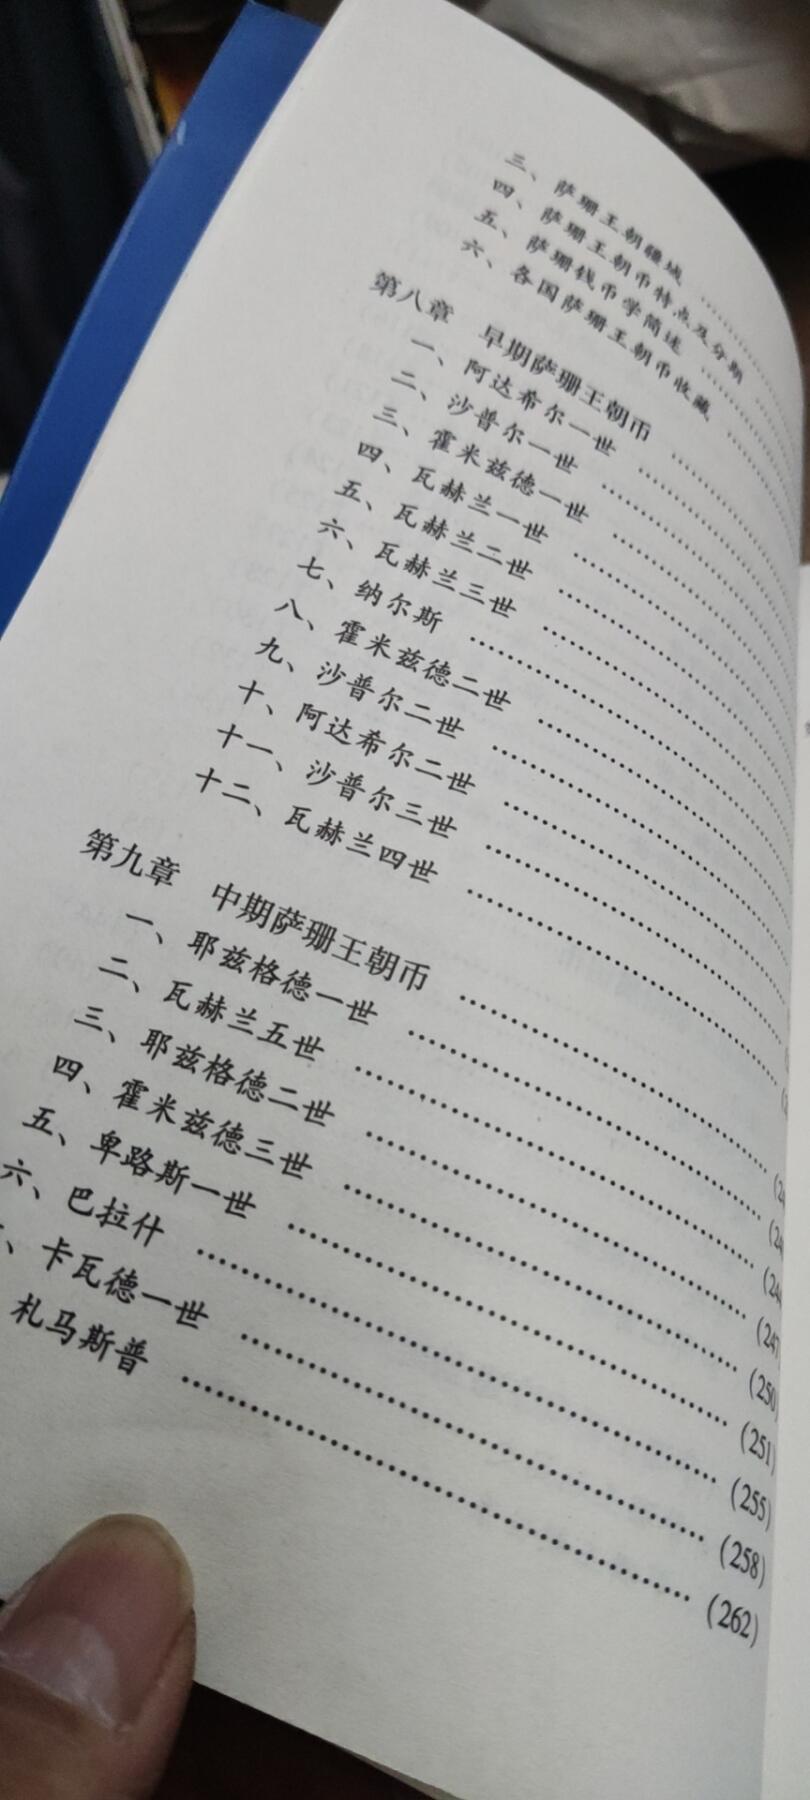 三、萨珊王朝疆域
四、萨珊王朝币特点及分期
五、萨珊钱币学简述
六、各国萨珊王朝币收藏
第八章 早期萨珊王朝币
一、阿达希尔一世
二、沙普尔一世
三、霍米兹德一世
四、瓦赫兰一世
五、瓦赫兰二世
六、瓦赫兰三世
七、纳尔斯
八、霍米兹德二世
九、沙普尔二世
十、阿达希尔二世
十一、沙普尔三世
十二、瓦赫兰四世
第九章 中期萨珊王朝币
一、耶兹格德一世
二、瓦赫兰五世
三、耶兹格德二世 (247
四、霍米兹德三世 (250)
五、卑路斯一世 (251)
六、巴拉什 (255)
、卡瓦德一世 (258)
札马斯普 (262)